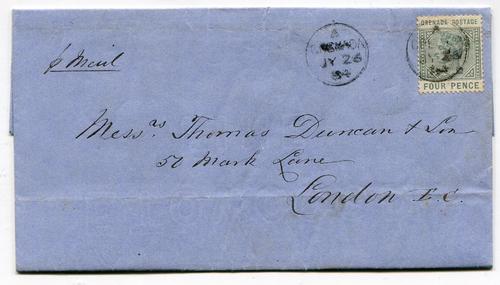 GRENADA POSTAGE
A
GRENADA
JY 26
84
FOUR PENCE
p Mail
Messrs Thomas Duncan & Son
50 Mark Lane
London E.C.